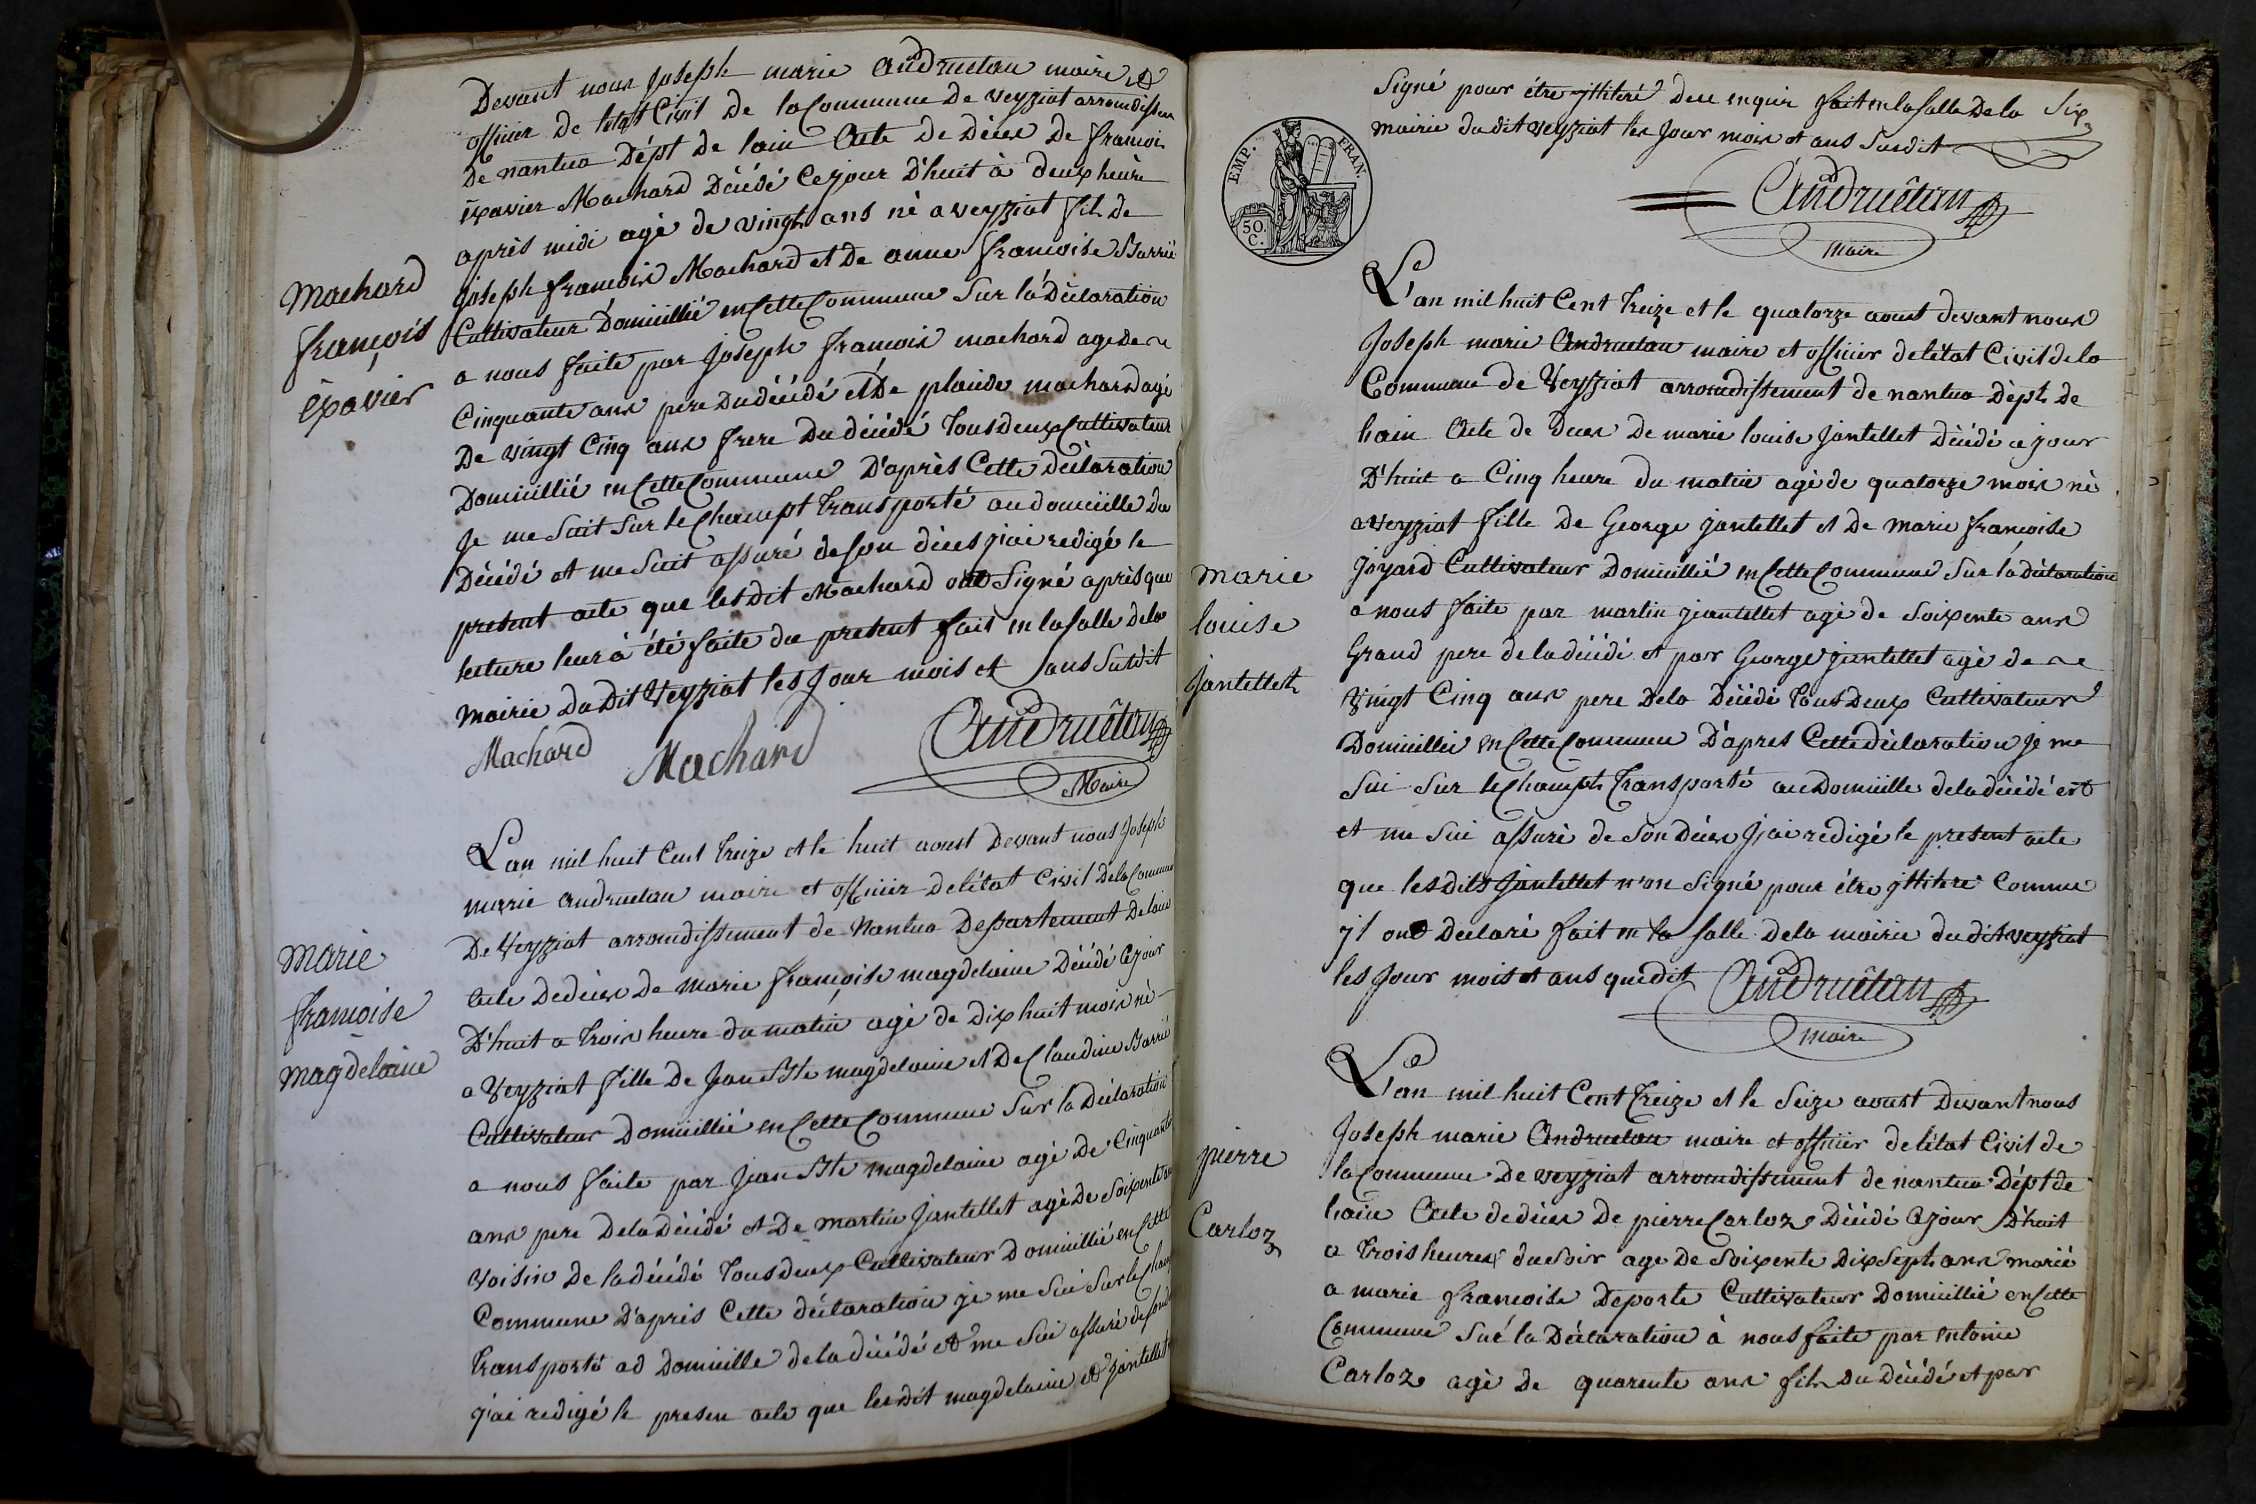 Devant nous joseph marie andruetan maire et
officier de letat Civil de la Commune de veyziat arrondissem
de nantua Dépt de lain Acte de décès de francois
Expavier Machard Décédé Cejour D'huit à deux heure
après midi agé de vingt ans né a veyziat fils de
joseph francois Machard et de anne francoise Barrié
Cultivateur Domicillié en Cette Commune Sur la Déclaration
a nous faite par joseph francois machard age de
Cinquante ans pere Du décédé et De placide machard agé
De vingt Cinq ans frere Du décédé Tous deux Cultivateur
Domicillié en Cette Commune D'après Cette déclaration
Je me Suit Sur le Champt transporté au domicille du
Décédé et me Suit assuré de son décès j'ai redigé le
present acte que lesdit Machard ont Signé après que
lecture leur à été faite du present fait en la salle dela
mairie Du Dit Veyziat les jour mois et ans Susdit
Machard Machard Andruêtan
Maire
Machard
françois
Expavier
L'an mil huit Cent treize et le huit aoust Devant nous Joseph
marie andruetan maire et officier de létat Civil Dela Commune
De Veyziat arrondissement de Nantua Departement Delain
Acte Dedéces De Marie françoise magdelaine Décédé Cejour
D'huit a trois heure du matin agé de dixhuit mois né
a Veyziat fille De Jean Bte magdelaine et De Claudine Barrié
Cultivateur Domicillié en Cette Commune Sur la Déclaration
a nous faite par Jean Bte magdelaine agé de Cinquante
ans pere Dela Décédé et De martin Jantellet agé De Soixente ans
voisin de la décédé Tous deux Cultivateur Domicillié en Cette
Commune D'après Cette déclaration je me Sui Sur le Champ
transporté ad Domicille de la décédé et me Sui assuré de son dé
j'ai redigé le presen acte que lesdit magdelaine et Jantellet
marie
francoise
magdelaine
Signé pour étre yttiteré de ce enquir fait en la salle De la
mairie du dit veyziat les jour mois et ans Susdit
Six
EMP. FRAN.
50.
C.
Andruêtan
Maire
L'an mil huit Cent treize et le quatorze aoust devant nous
Joseph marie Andruetan maire et officier de létat Civil de la
Commune de Veyziat arrondissement de nantua Dépt de
lain Acte de Deces De marie louise Jantellet Décédé ce jour
D'huit a Cinq heure du matin agé de quatorze mois né
a veyziat fille de George jantellet et De marie francoise
Joyard Cultivateur Domicillié en Cette Commune Sur la déclaration
a nous faite par martin jeantellet agé de Soixente ans
Grand pere de la décédé et par George jantellet agé de
Vingt Cinq ans pere De la Décédé Tous Deux Cultivateur
Domicillié en Cette Commune D'apres Cette déclaration je me
Sui Sur le Champt transporté au Domicille de la décédé est
et me Sui assuré de Son Déces J'ai rédigé le present acte
que lesdits Jantellet n'on Signé pour être yttiteré Comme
yl ont Déclaré fait en la salle de la mairie du dit veyziat
les jour mois et ans que dit Andruêtan
maire
marie
louise
jantellet
L'an mil huit Cent treize et le Seize aoust Devant nous
Joseph marie Andruetan maire et officier de létat Civil de
la Commune De veyziat arrondissement de nantua Dépt de
lain Acte de déces De pierre Carloz Décédé Cejour D'huit
a trois heures du soir age De Soixente Dix Sept ans marié
a marie francoise Deporte Cultivateur Domicillié en Cette
Commune Sur la Déclaration à nous faite par entoine
Carloz agé De quarente ans fils Du Décédé et par
pierre
Carloz